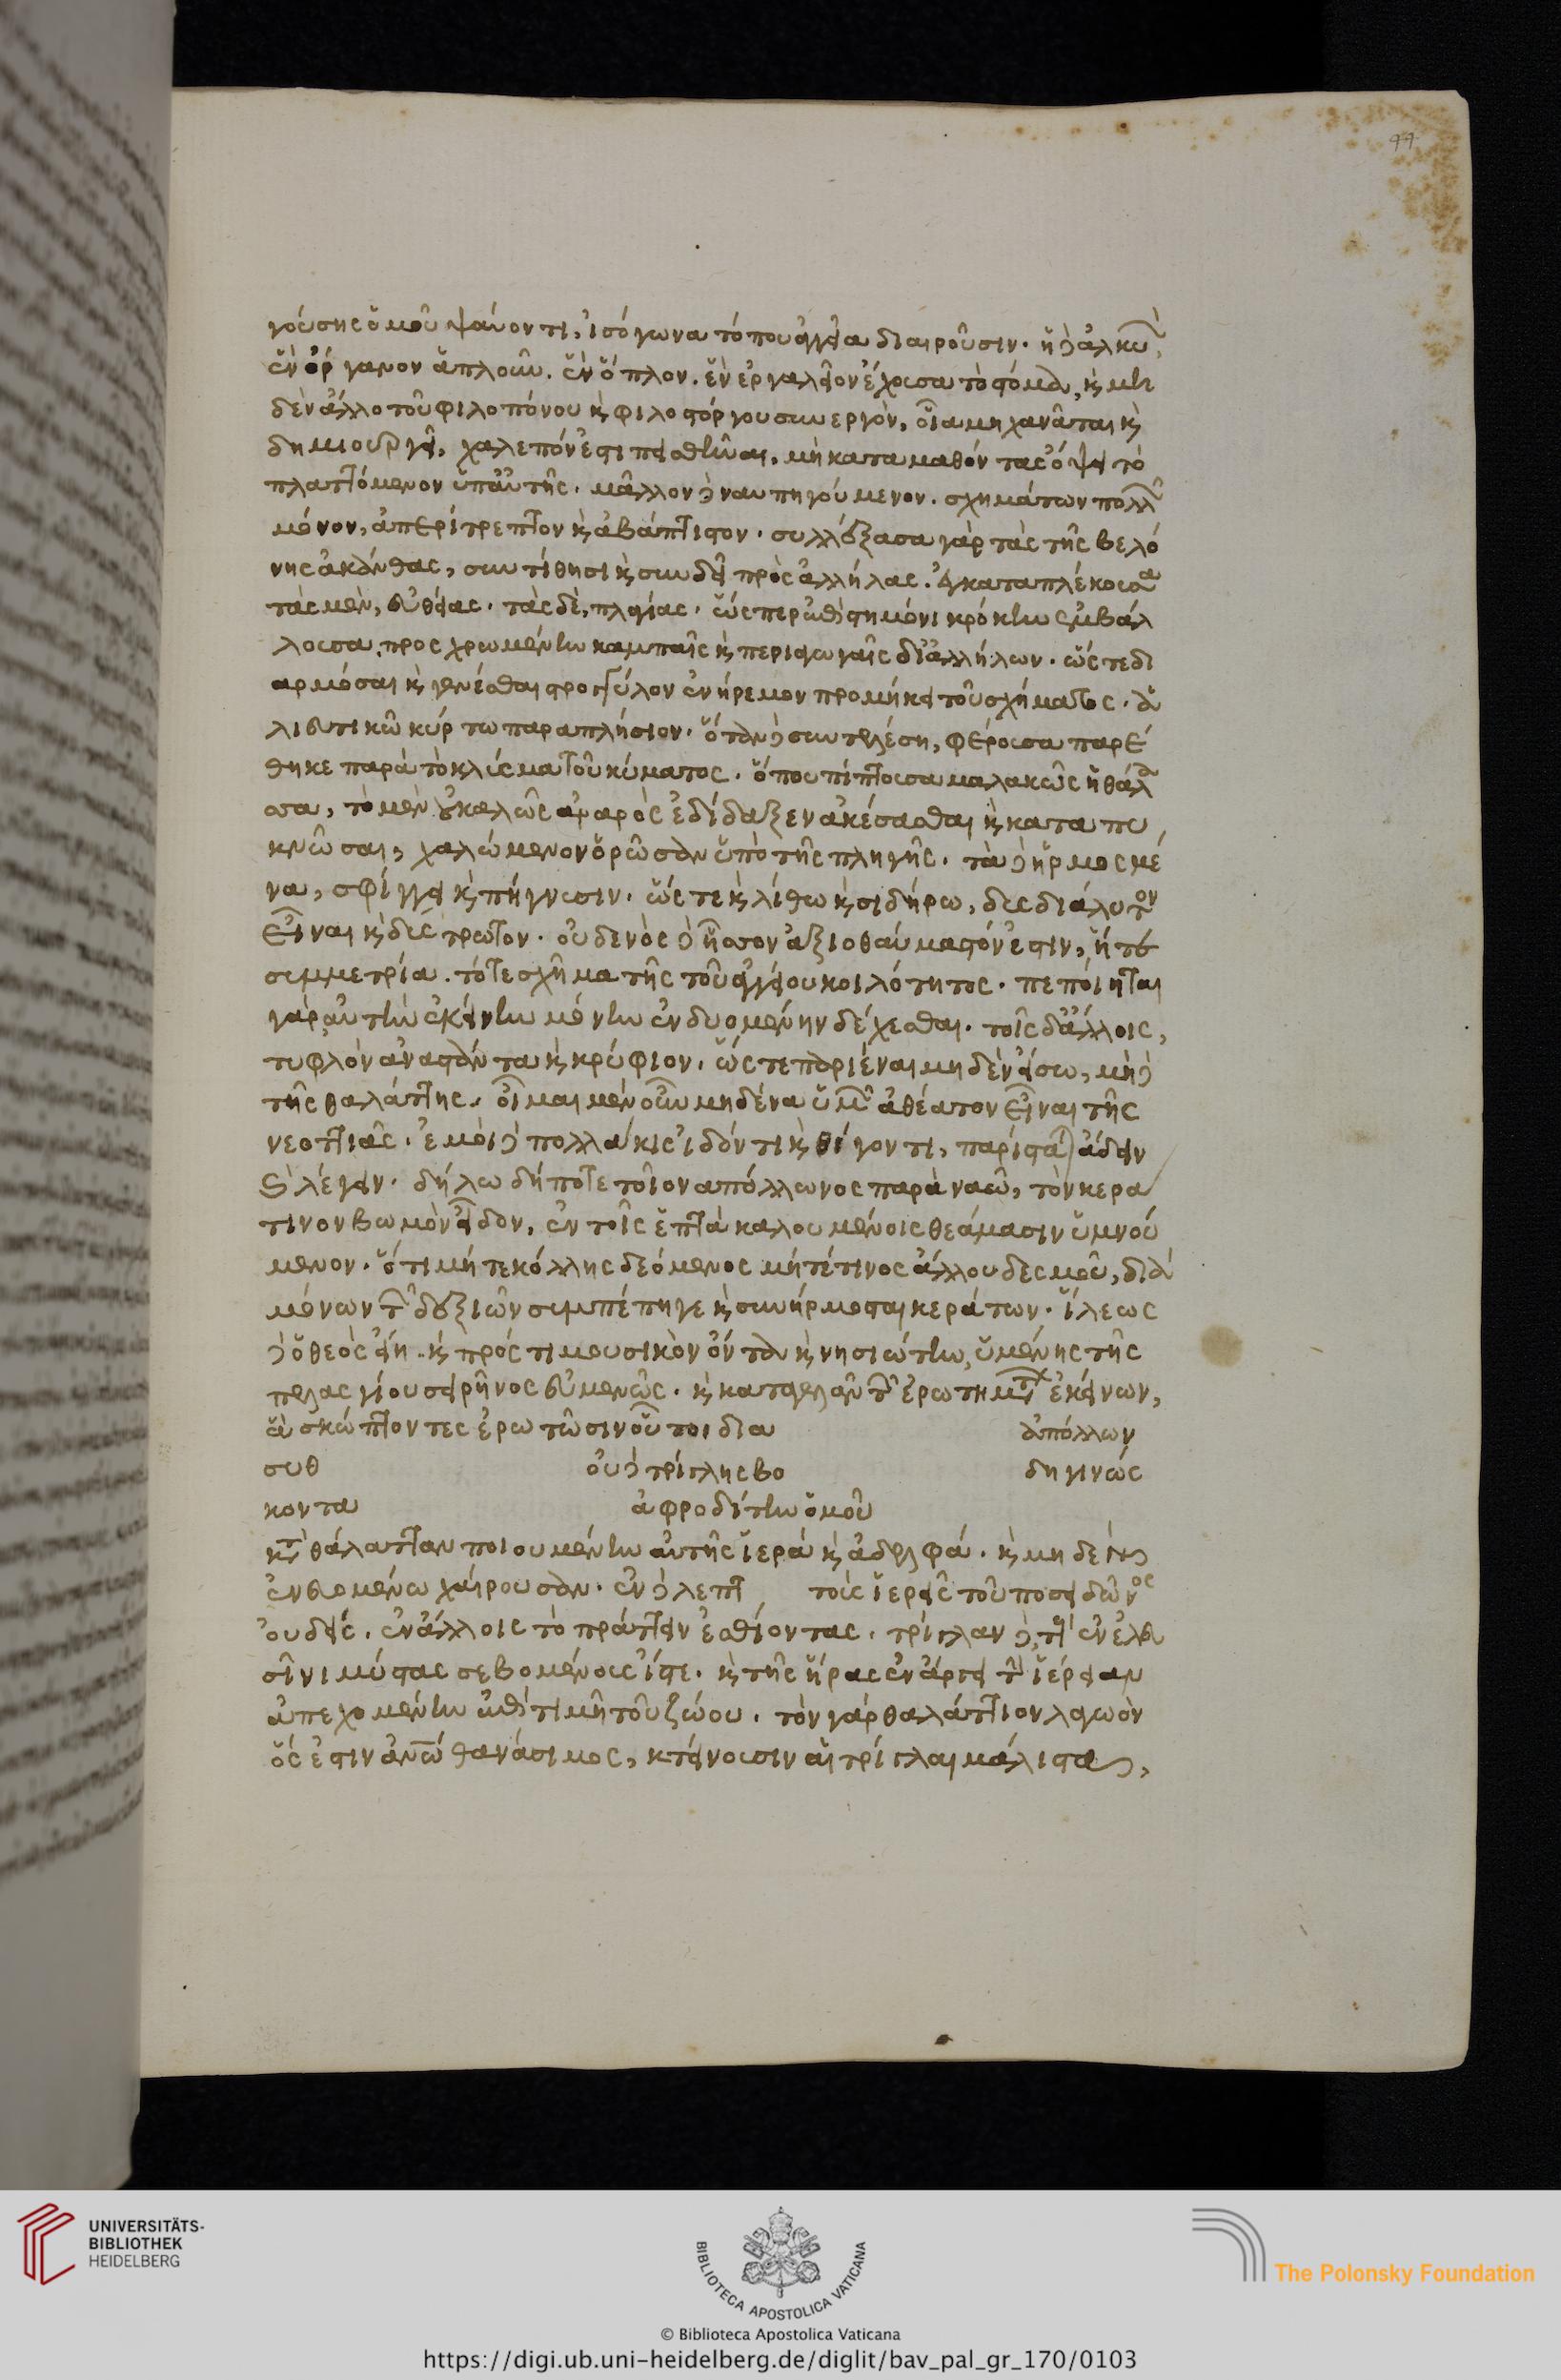 99
γούσης ὁμοῦ ψαύοντι, ἰσόγωνα τόπου ἀγγεῖα διαιροῦσιν. ἡ δ ἀλκυ,
ἓν ὄργανον ἁπλοῦν. ἓν ὅπλον. ἓν ἐργαλεῖον ἔχουσα τὸ στόμα, καὶ μη
δὲν ἄλλο τοῦ φιλοπόνου καὶ φιλοστόργου συνεργὸν, οἷα μηχανᾶται καὶ
δημιουργεῖ, χαλεπόν ἐστι πεισθῆναι, μὴ καταμαθόντας ὄψει τὸ
πλαττόμενον ὑπ αὐτῆς. μᾶλλον δὲ ναυπηγούμενον. σχημάτων πολλῶν
μόνον, ἀπερίτρεπτον καὶ ἀβάπτιστον. συλλέξασα γὰρ τὰς τῆς βελό
νης ἀκάνθας, συντίθησι καὶ συνδεῖ πρὸς ἀλλήλας. ἐγκαταπλέκουσα
τὰς μὲν, εὐθείας. τὰς δὲ, πλαγίας. ὥσπερ ἐπὶ στήμονι κρόκην ἐμβάλ
λουσα, προσχρωμένην καμπαῖς καὶ περιαγωγαῖς δι ἀλλήλων. ὥστε δι
αρμόσαι καὶ γενέσθαι στρογγύλον ἐν ἠρέμον προμήκει τοῦ σχήματος. ἁ
λιευτικῶ κύρτω παραπλήσιον. ὅταν δὲ συντελέση, φέρουσα παρέ
θηκε παρὰ τὸ κλύσμα τοῦ κύματος. ὅπου πίπτουσα μαλακῶς ἡ θάλα
σσα, τὸ μὲν οὐ καλῶς ἀραρὸς ἐδίδαξεν ἀκέσασθαι καὶ καταπυ
κνῶσαι, χαλώμενον ὁρῶσαν ὑπὸ τῆς πληγῆς. τὰ δ ἡρμοσμέ
να, σφίγγει καὶ πήγνυσιν. ὥστε καὶ λίθω καὶ σιδήρω, δυσδιάλυτον
εἶναι καὶ δύστρωτον. οὐδενὸς δ ἧσσον ἀξιοθαύμαστόν ἐστιν, ἥ τε
συμμετρία. τό τε σχῆμα τῆς τοῦ ἀγγείου κοιλότητος. πεποίηται
γὰρ αὐτὴν ἐκείνην μόνην ἐνδυομένην δέχεσθαι. τοῖς δ ἄλλοις,
τυφλὸν ἀναστάντα καὶ κρύφιον. ὥστε παριέναι μηδὲν εἴσω, μὴ δὲ
τῆς θαλάττης. οἶμαι μὲν οὖν μηδένα ὑμῶν ἀθέατον εἶναι τῆς
νεοττιᾶς. ἐμοὶ δὲ πολλάκις ἰδόντι καὶ θίγοντι, παρίσταται ἄδειν
καὶ λέγειν. δήλω δήποτε τοῖον ἀπόλλωνος παρὰ ναῶ, τὸν κερά
τινον βωμὸν εἶδον, ἐν τοῖς ἑπτὰ καλουμένοις θεάμασιν ὑμνού
μενον. ὅτι μήτε κόλλης δεόμενος μήτέ τινος ἄλλου δεσμοῦ, διὰ
μόνων τῶν δεξιῶν συμπέπηγε καὶ συνήρμοσται κεράτων. ἵλεως
δ ὁ θεὸς εἴη. καὶ πρός τι μουσικὸν ὄντα καὶ νησιώτην, ὑμένης τῆς
πελαγίου σειρῆνος εὐμενῶς. καὶ καταγελᾶν τῶν ἐρωτημάτων ἐκείνων,
ἃ σκώπτοντες ἐρωτῶσιν οὗτοι δια ἀπόλλων
συθ οὐ δὲ τρίγλης βο δη γινώς
κοντα ἀφροδίτην ὁμοῦ
κατὰ θάλατταν ποιουμένην αὐτῆς ἱερὰ καὶ ἀδελφά. καὶ μηδενὶ
ἐνθομένω χαίρουσαν. ἐν δὲ λεπτ τοὺς ἱερεῖς τοῦ ποσειδῶνος
οὐδεὶς. ἐν ἄλλοις τὸ πράττειν ἐσθίοντας. τρίγλαν δὲ, τῆ ἐν ἐλευ
σῖνι μύστας σεβομένους ἴστε. καὶ τῆς ἥρας ἐν ἄργει τὴν ἱέρειαν
ἀπεχομένην ἐπὶ τιμῆ τοῦ ζώου. τὸν γὰρ θαλάττιον λαγωὸν
ὅς ἐστιν ἀνθρώπω θανάσιμος, κτείνουσιν αἱ τρίγλαι μάλιστα,
UNIVERSITÄTS-
BIBLIOTHEK
HEIDELBERG
BIBLIOTECA APOSTOLICA VATICANA
The Polonsky Foundation
© Biblioteca Apostolica Vaticana
https://digi.ub.uni-heidelberg.de/diglit/bav_pal_gr_170/0103